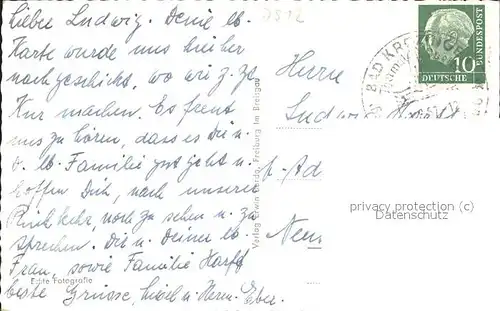 Lieber Ludwig. Deine lb.
Karte wurde uns hierher
nachgeschickt, wo wir z. Zt.
Kur machen. Es freut
uns zu hören, dass es Dir u.
d. lb. Familie gut geht u.
hoffen Dich, nach unserer
Rückkehr, noch zu sehen u. zu
sprechen. Dir u. Deiner lb.
Frau, sowie Familie
beste Grüsse, u. Herm. Eber.
Echte Fotografie
Verlag Erwin Burda, Freiburg im Breisgau
DEUTSCHE
BUNDESPOST
10
BAD KR
Herrn
p. Ad
protected by copyright (c)
Datenschutz